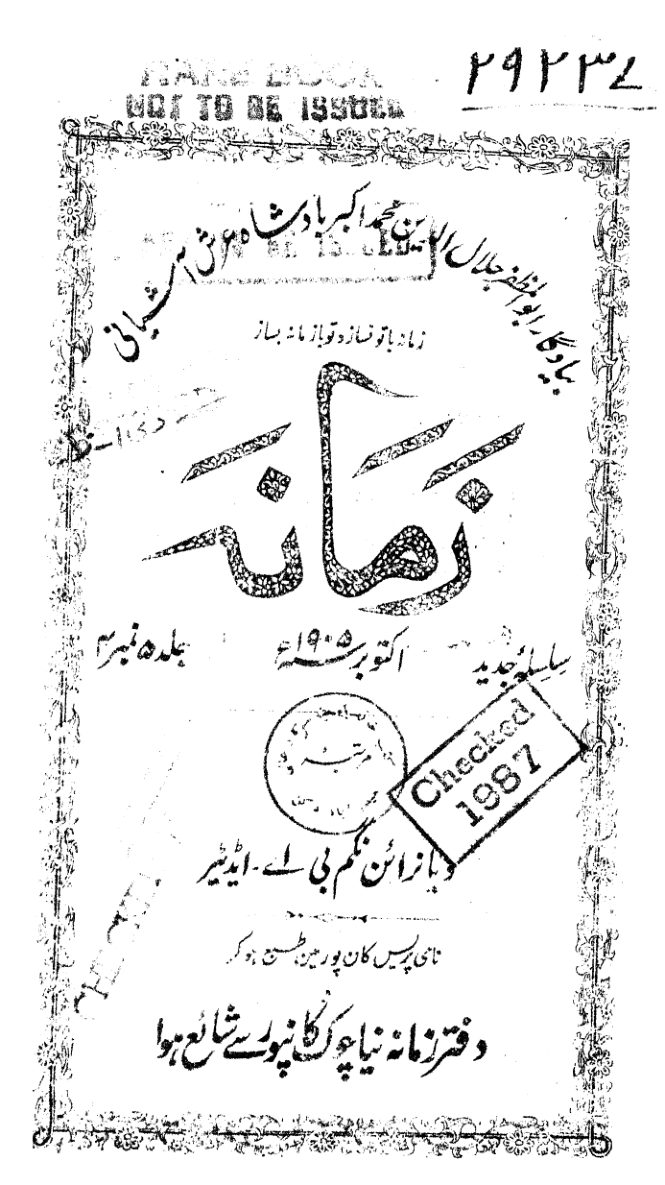 ۲۹۲۳۷
HAND BOOK
NOT TO BE ISSUED
بیادگار ابوالمظفر جلال الدین محمد اکبر بادشاہ عرش آشیانی
زمانہ باتو نسازد تو بازمانہ بساز
زمانہ
سلسلۂ جدید
اکتوبر ۱۹۰۵ء
جلد ۵ نمبر ۴
Checked
1987
دیا نرائن نگم بی اے - ایڈیٹر
نامی پریس کان پور مین طبع ہو کر
دفتر زمانہ نیا چوک کانپور سے شائع ہوا